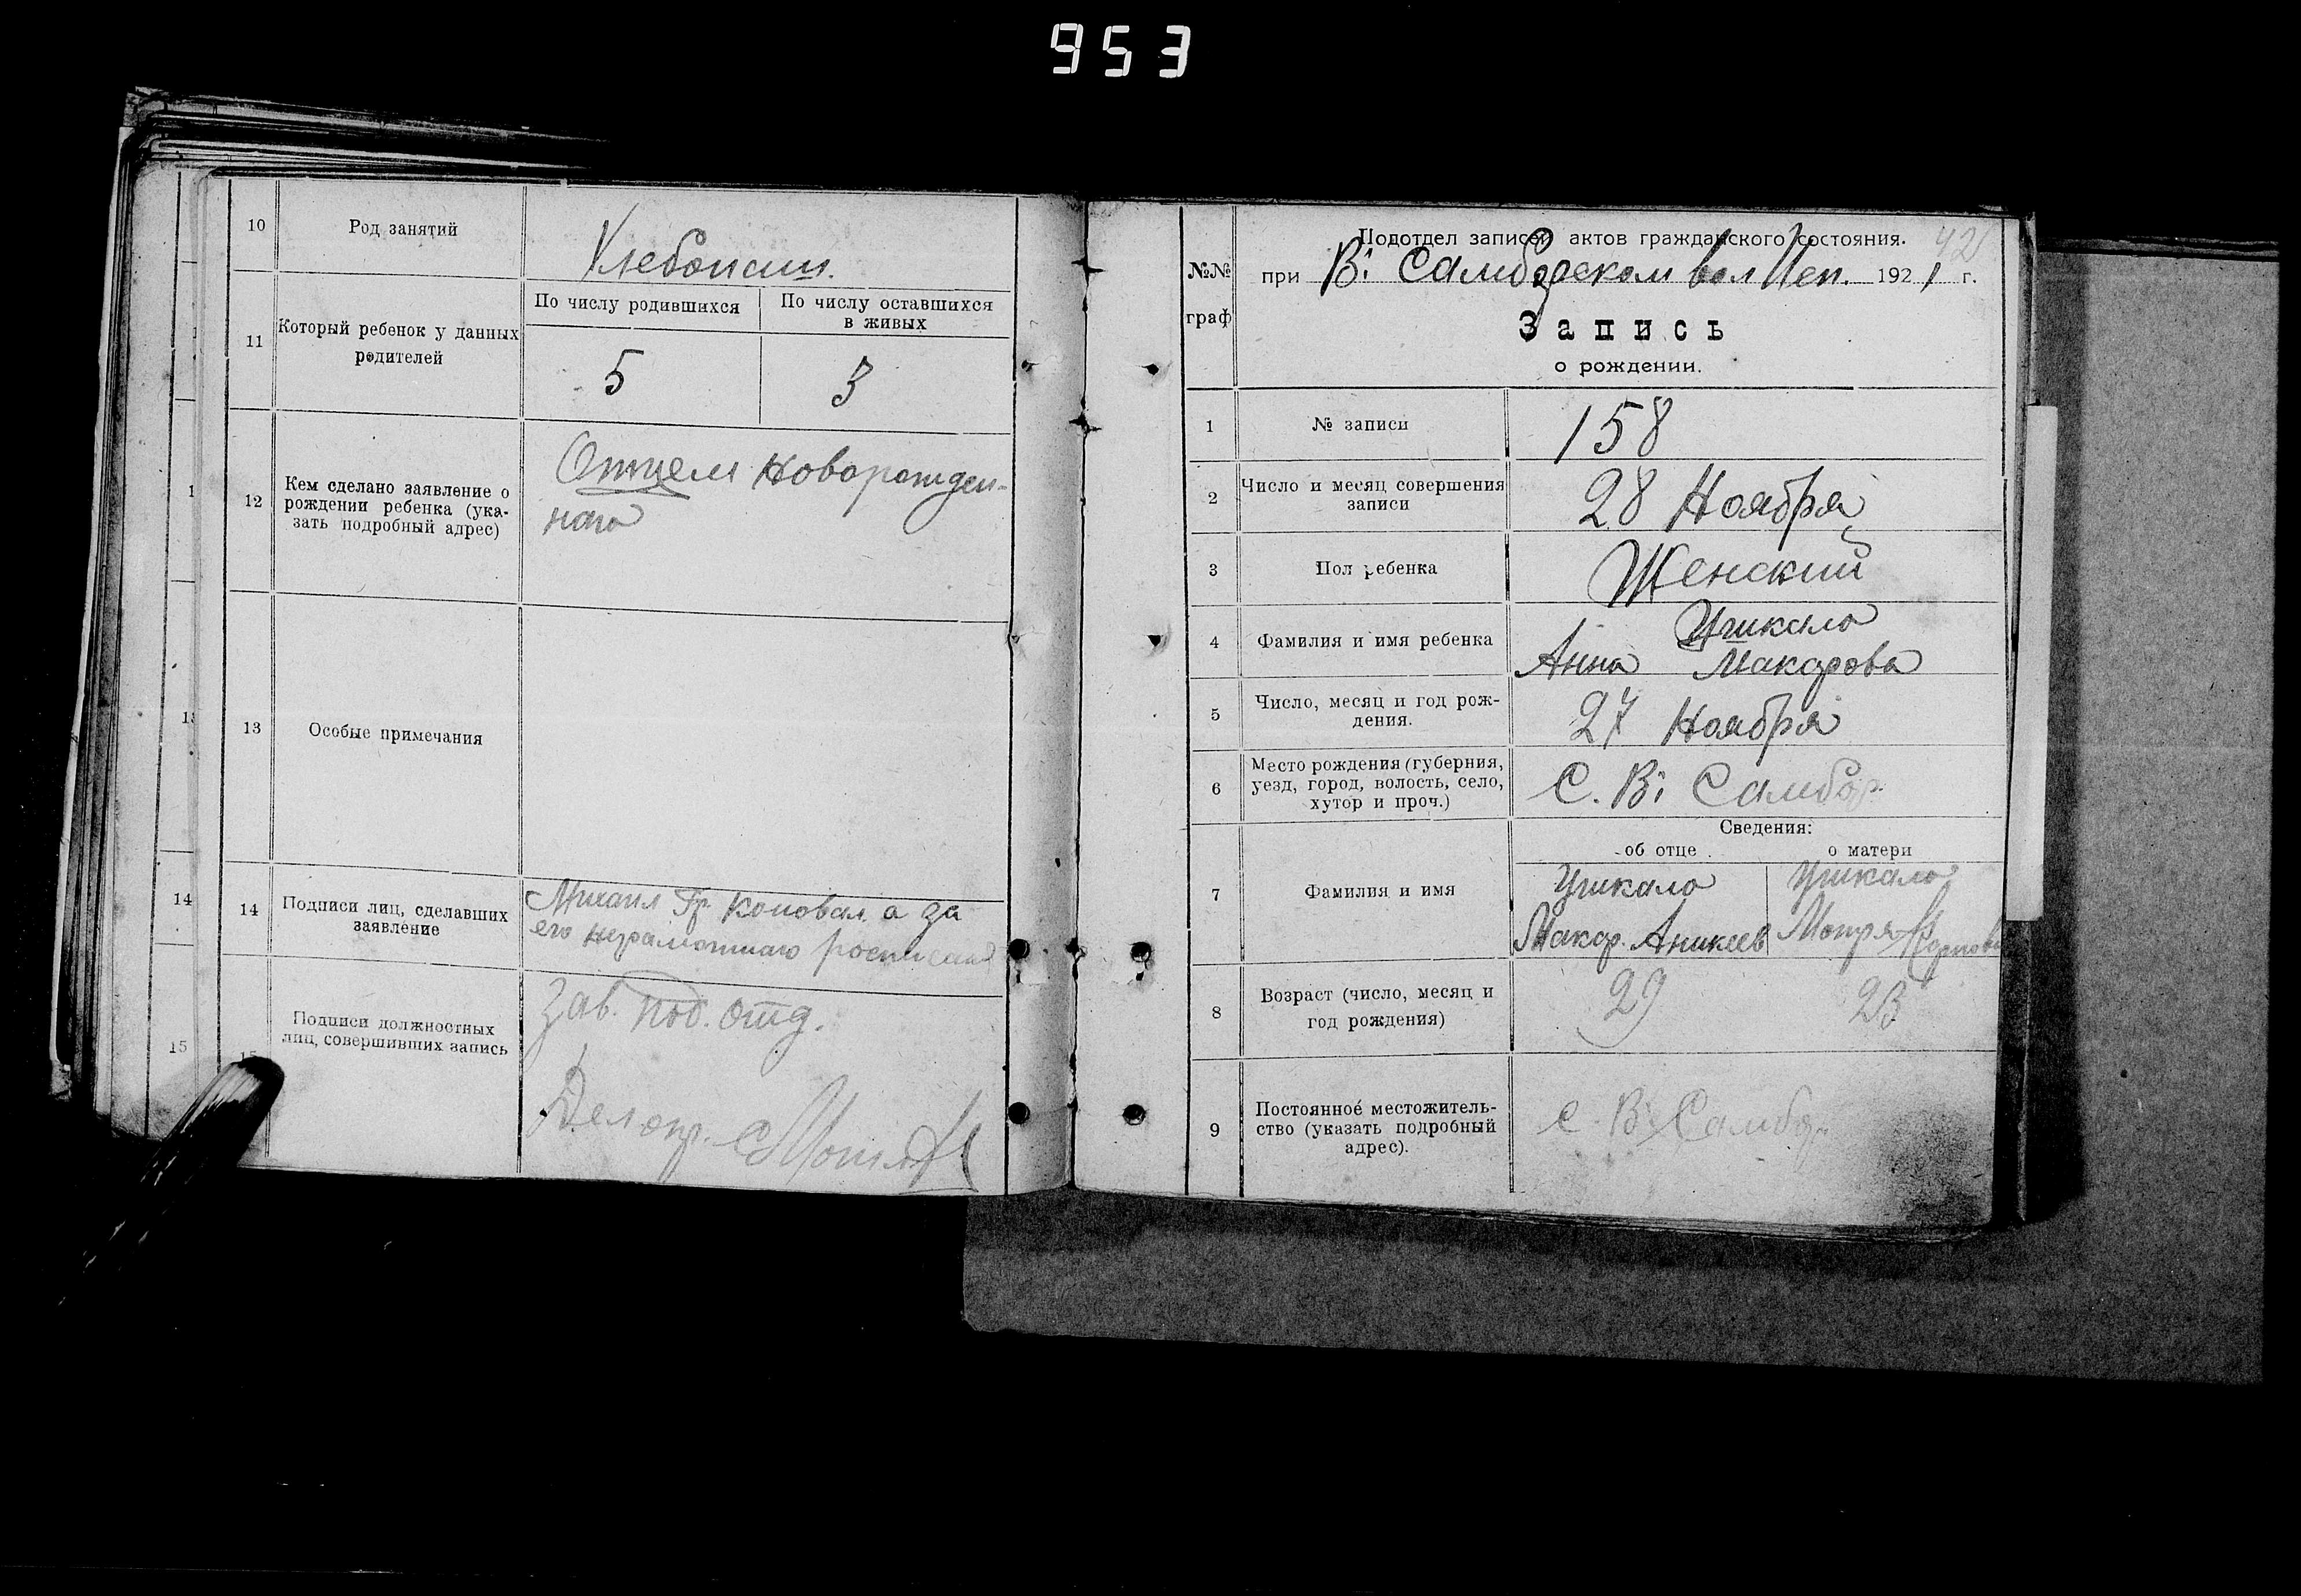 953
10
Род занятий
Хлебопаш.
11
Который ребенок у данных
родителей
По числу родившихся
По числу оставшихся
в живых
5
3
12
Кем сделано заявление о
рождении ребенка (ука-
зать подробный адрес)
Отцем новорожден-
наго
13
Особые примечания
14
14
Подписи лиц, сделавших
заявление
Михаил Гр. Коновал а за
его неграмотнаго
15
15
Подписи должностных
лиц, совершивших запись
Зав. под. отд.
Делопр.
№№
граф
Подотдел записей актов гражданского состояния.
42
при Ві Самборском вол Исп. 1921 г.
Запись
о рождении.
1
№ записи
158
2
Число и месяц совершения
записи
28 Ноября
3
Пол ребенка
Женский
4
Фамилия и имя ребенка
Ушкало
Анна Макарова
5
Число, месяц и год рож-
дения.
27 Ноября
6
Место рождения (губерния,
уезд, город, волость, село,
хутор и проч.)
С. Ві Самбор.
7
Фамилия и имя
Сведения:
об отце
о матери
Ушкало
Макар. Аникеев
Ушкало
Мотря Карпова
8
Возраст (число, месяц и
год рождения)
29
23
9
Постоянное местожитель-
ство (указать подробный
адрес).
С. Ві Самбор.